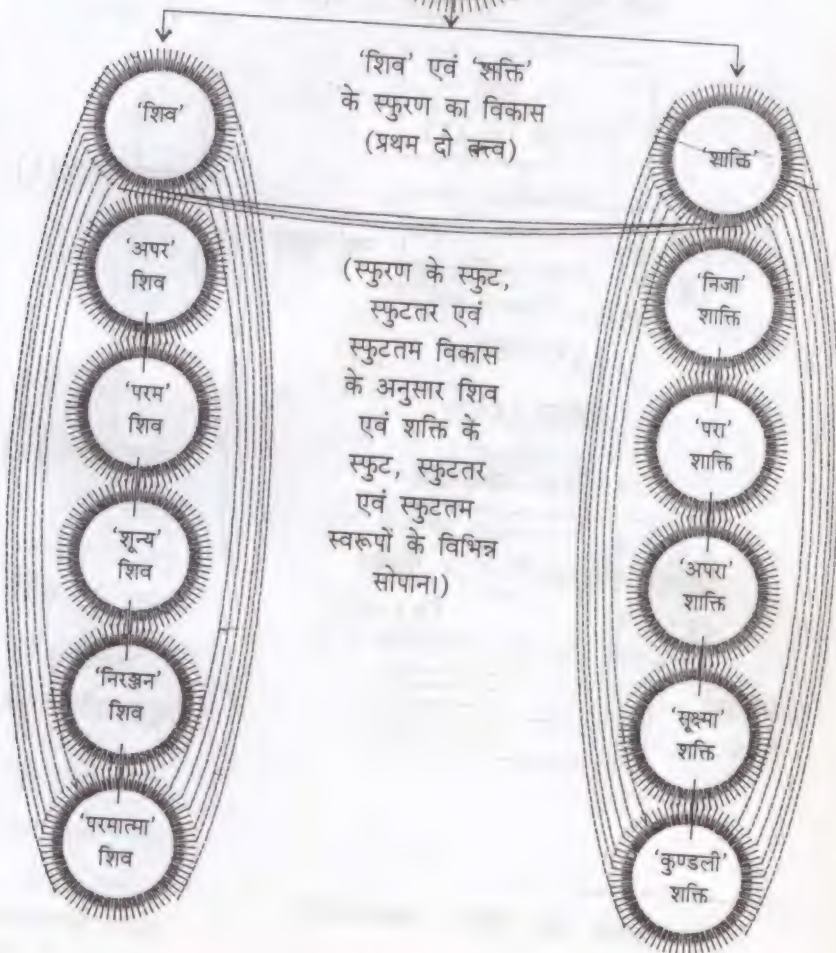 'शिव' एवं 'शक्ति'
के स्फुरण का विकास
(प्रथम दो तत्त्व)
'शिव'
'अपर'
शिव
'परम'
शिव
'शून्य'
शिव
'निरञ्जन'
शिव
'परमात्मा'
शिव
(स्फुरण के स्फुट,
स्फुटतर एवं
स्फुटतम विकास
के अनुसार शिव
एवं शक्ति के
स्फुट, स्फुटतर
एवं स्फुटतम
स्वरूपों के विभिन्न
सोपान।)
'शाक्ति'
'निजा'
शाक्ति
'परा'
शाक्ति
'अपरा'
शाक्ति
'सूक्ष्मा'
शक्ति
'कुण्डली'
शक्ति